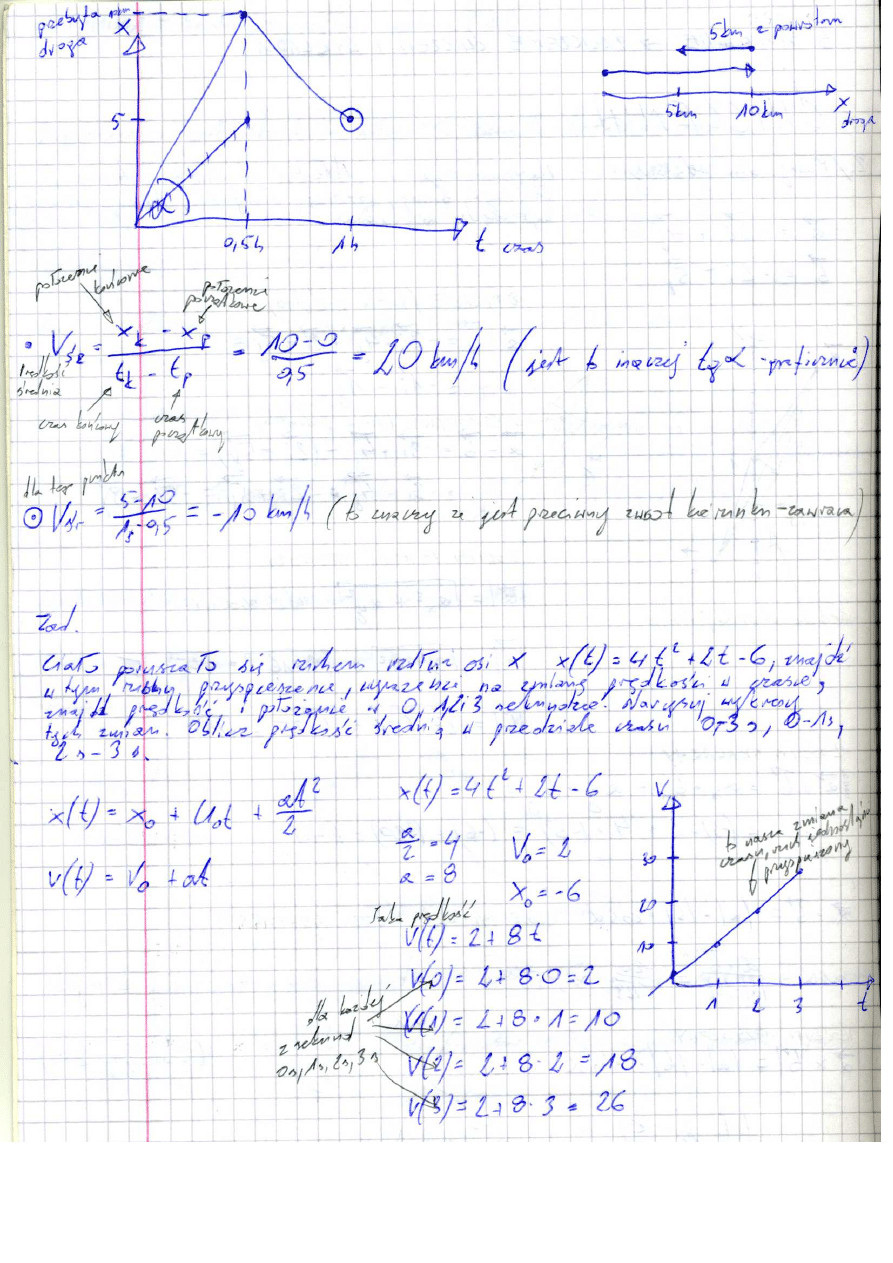 przebyta 10km
x
droga
5
α
0,5h
1h
t czas
5km z powrotem
5km
10km
x
droga
położenie końcowe
położenie początkowe
• Vśr = (xk - xp)/(tk - tp) = (10-0)/0,5 = 20 km/h (jest to inaczej tg α - graficznie)
Prędkość średnia
czas końcowy
czas początkowy
dla tego punktu
⊙ Vśr = (5-10)/(1-0,5) = -10 km/h (to znaczy że jest przeciwny zwrot kierunku - zawraca)
Zad.
Ciało porusza się ruchem wzdłuż osi x x(t) = 4t² + 2t - 6, znajdź
w tym ruchu, przyspieszenie, wyrażenie na zmianę prędkości w czasie,
znajdź prędkość i położenie w 0, 1, 2 i 3 sekundzie. Narysuj wykresy
tych zmian. Oblicz prędkość średnią w przedziale czasu 0-3s, 0-1s,
2s-3s.
x(t) = x₀ + V₀t + at²/2
v(t) = V₀ + at
x(t) = 4t² + 2t - 6
a/2 = 4
a = 8
V₀ = 2
x₀ = -6
prędkość
V(t) = 2 + 8t
V(0) = 2 + 8·0 = 2
V(1) = 2 + 8·1 = 10
V(2) = 2 + 8·2 = 18
V(3) = 2 + 8·3 = 26
dla każdej
z sekund
0s, 1s, 2s, 3s
V
30
20
10
1 2 3 t
to nasza zmiana
czasu, ruch jednostajnie
przyspieszony